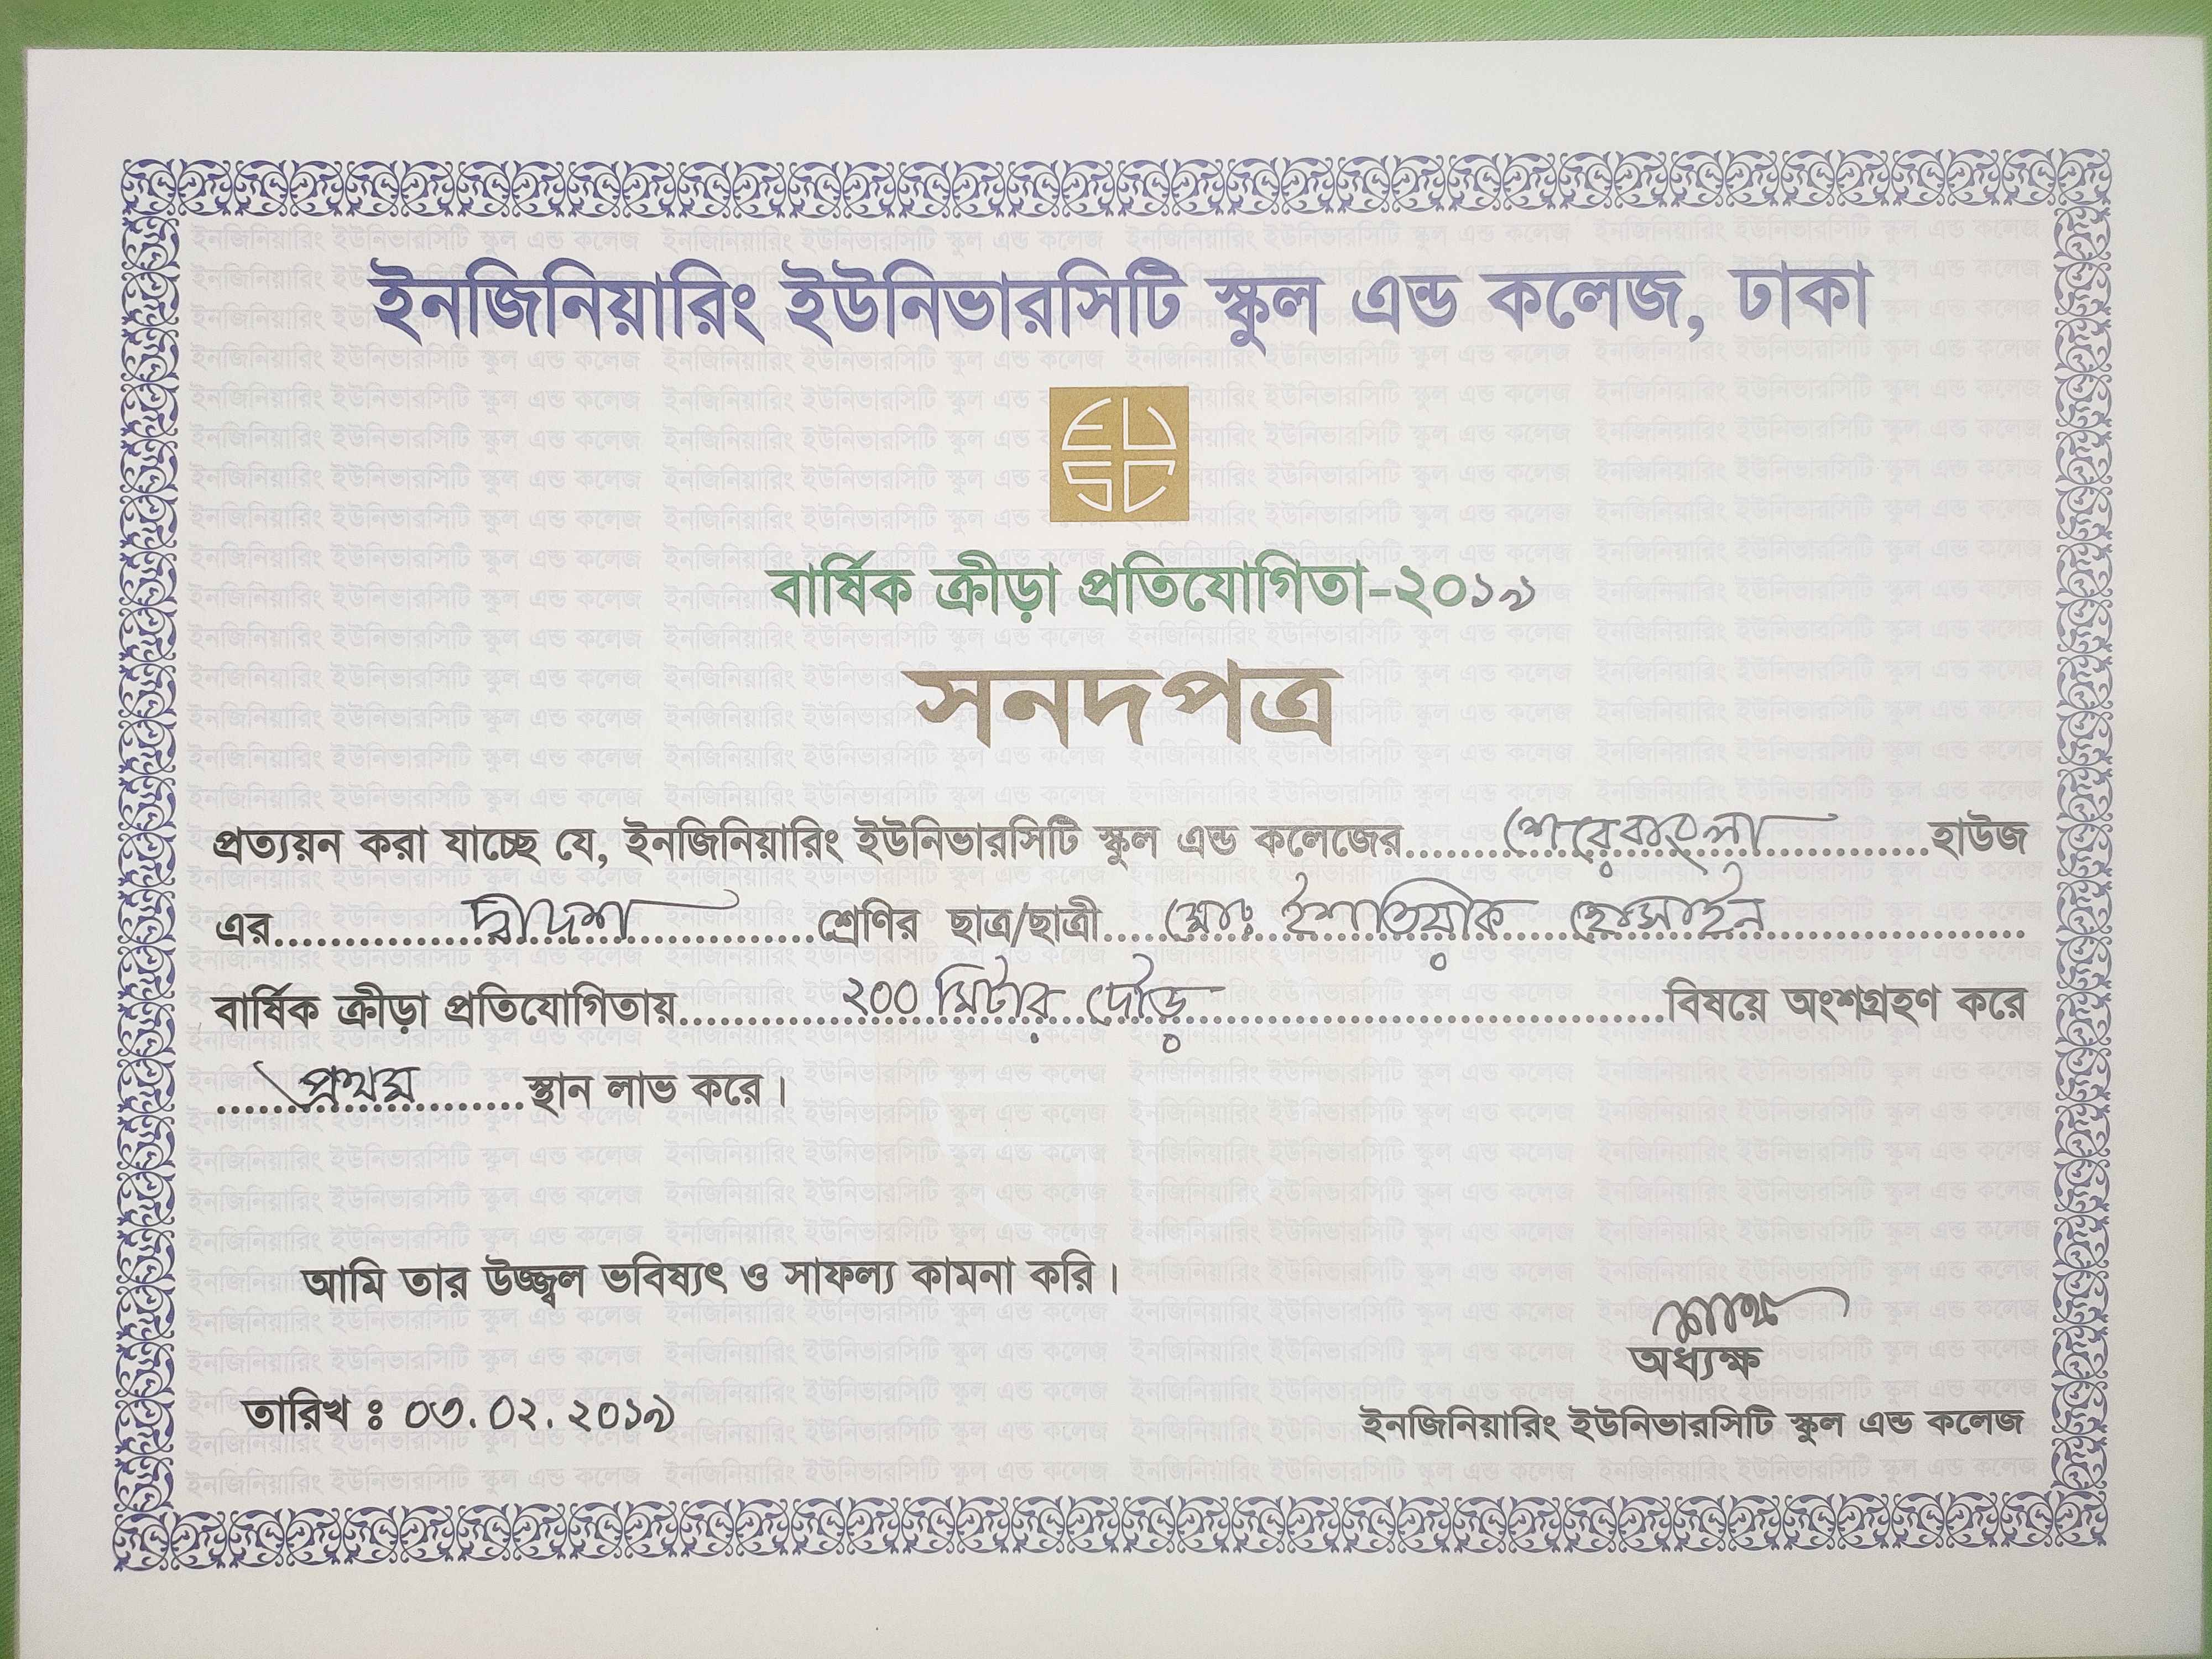 ইনজিনিয়ারিং ইউনিভারসিটি স্কুল এন্ড কলেজ, ঢাকা
EUSC
বার্ষিক ক্রীড়া প্রতিযোগিতা-২০১৯
সনদপত্র
প্রত্যয়ন করা যাচ্ছে যে, ইনজিনিয়ারিং ইউনিভারসিটি স্কুল এন্ড কলেজের শেরেবাংলা হাউজ
এর দ্বাদশ শ্রেণির ছাত্র/ছাত্রী মোঃ ইশতিয়াক হোসাইন
বার্ষিক ক্রীড়া প্রতিযোগিতায় ২০০ মিটার দৌড় বিষয়ে অংশগ্রহণ করে
প্রথম স্থান লাভ করে।
আমি তার উজ্জ্বল ভবিষ্যৎ ও সাফল্য কামনা করি।
অধ্যক্ষ
তারিখ : ০৩.০২.২০১৯
ইনজিনিয়ারিং ইউনিভারসিটি স্কুল এন্ড কলেজ